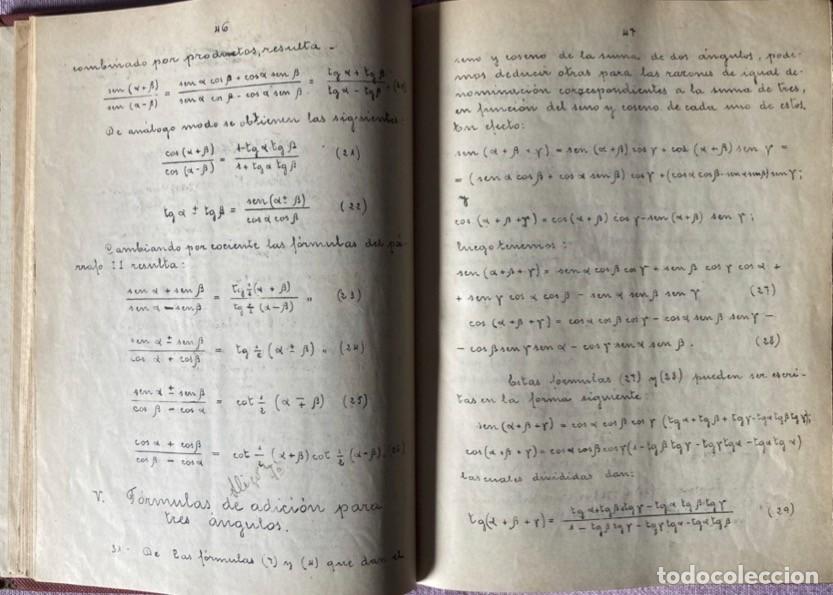 46
combinado por productos, resulta -
sen (α+β) / sen (α-β) = sen α cos β + cos α sen β / sen α cos β - cos α sen β = tg α + tg β / tg α - tg β
De análogo modo se obtienen las siguientes:
cos (α+β) / cos (α-β) = 1-tg α tg β / 1+tg α tg β (21)
tg α ± tg β = sen (α ± β) / cos α cos β (22)
Cambiando por cociente las fórmulas del pá-
rrafo II resulta:
sen α + sen β / sen α - sen β = tg ½ (α + β) / tg ½ (α-β) " (23)
sen α ± sen β / cos α + cos β = tg ½ (α ± β) " (24)
sen α ± sen β / cos β - cos α = cot ½ (α ∓ β) (25)
cos α + cos β / cos β - cos α = cot ½ (α+β) cot ½ (α-β)
V. Fórmulas de adición para
tres ángulos.
31- De las fórmulas (7) y (4) que dan el
47
seno y coseno de la suma de dos ángulos, pode-
mos deducir otras para las razones de igual de-
nominación correspondientes a la suma de tres,
en función del seno y coseno de cada uno de estos.
En efecto:
sen (α + β + γ) = sen (α+β) cos γ + cos (α+β) sen γ =
= (sen α cos β + cos α sen β) cos γ + (cos α cos β - sen α sen β) sen γ;
y
cos (α + β + γ) = cos (α+β) cos γ - sen (α+β) sen γ;
luego tenemos:
sen (α+β+γ) = sen α cos β cos γ + sen β cos γ cos α +
+ sen γ cos α cos β - sen α sen β sen γ (27)
cos (α+β+γ) = cos α cos β cos γ - cos α sen β sen γ -
- cos β sen γ sen α - cos γ sen α sen β. (28)
Estas formulas (27) y (28) pueden ser escri-
tas en la forma siguiente:
sen (α+β+γ) = cos α cos β cos γ (tg α + tg β + tg γ - tg α tg β tg γ);
cos (α+β+γ) = cos α cos β cos γ (1 - tg β tg γ - tg γ tg α - tg α tg β)
las cuales divididas dan:
tg (α + β + γ) = tg α + tg β + tg γ - tg α tg β tg γ / 1 - tg β tg γ - tg γ tg α - tg α tg β (29)
todocoleccion.net